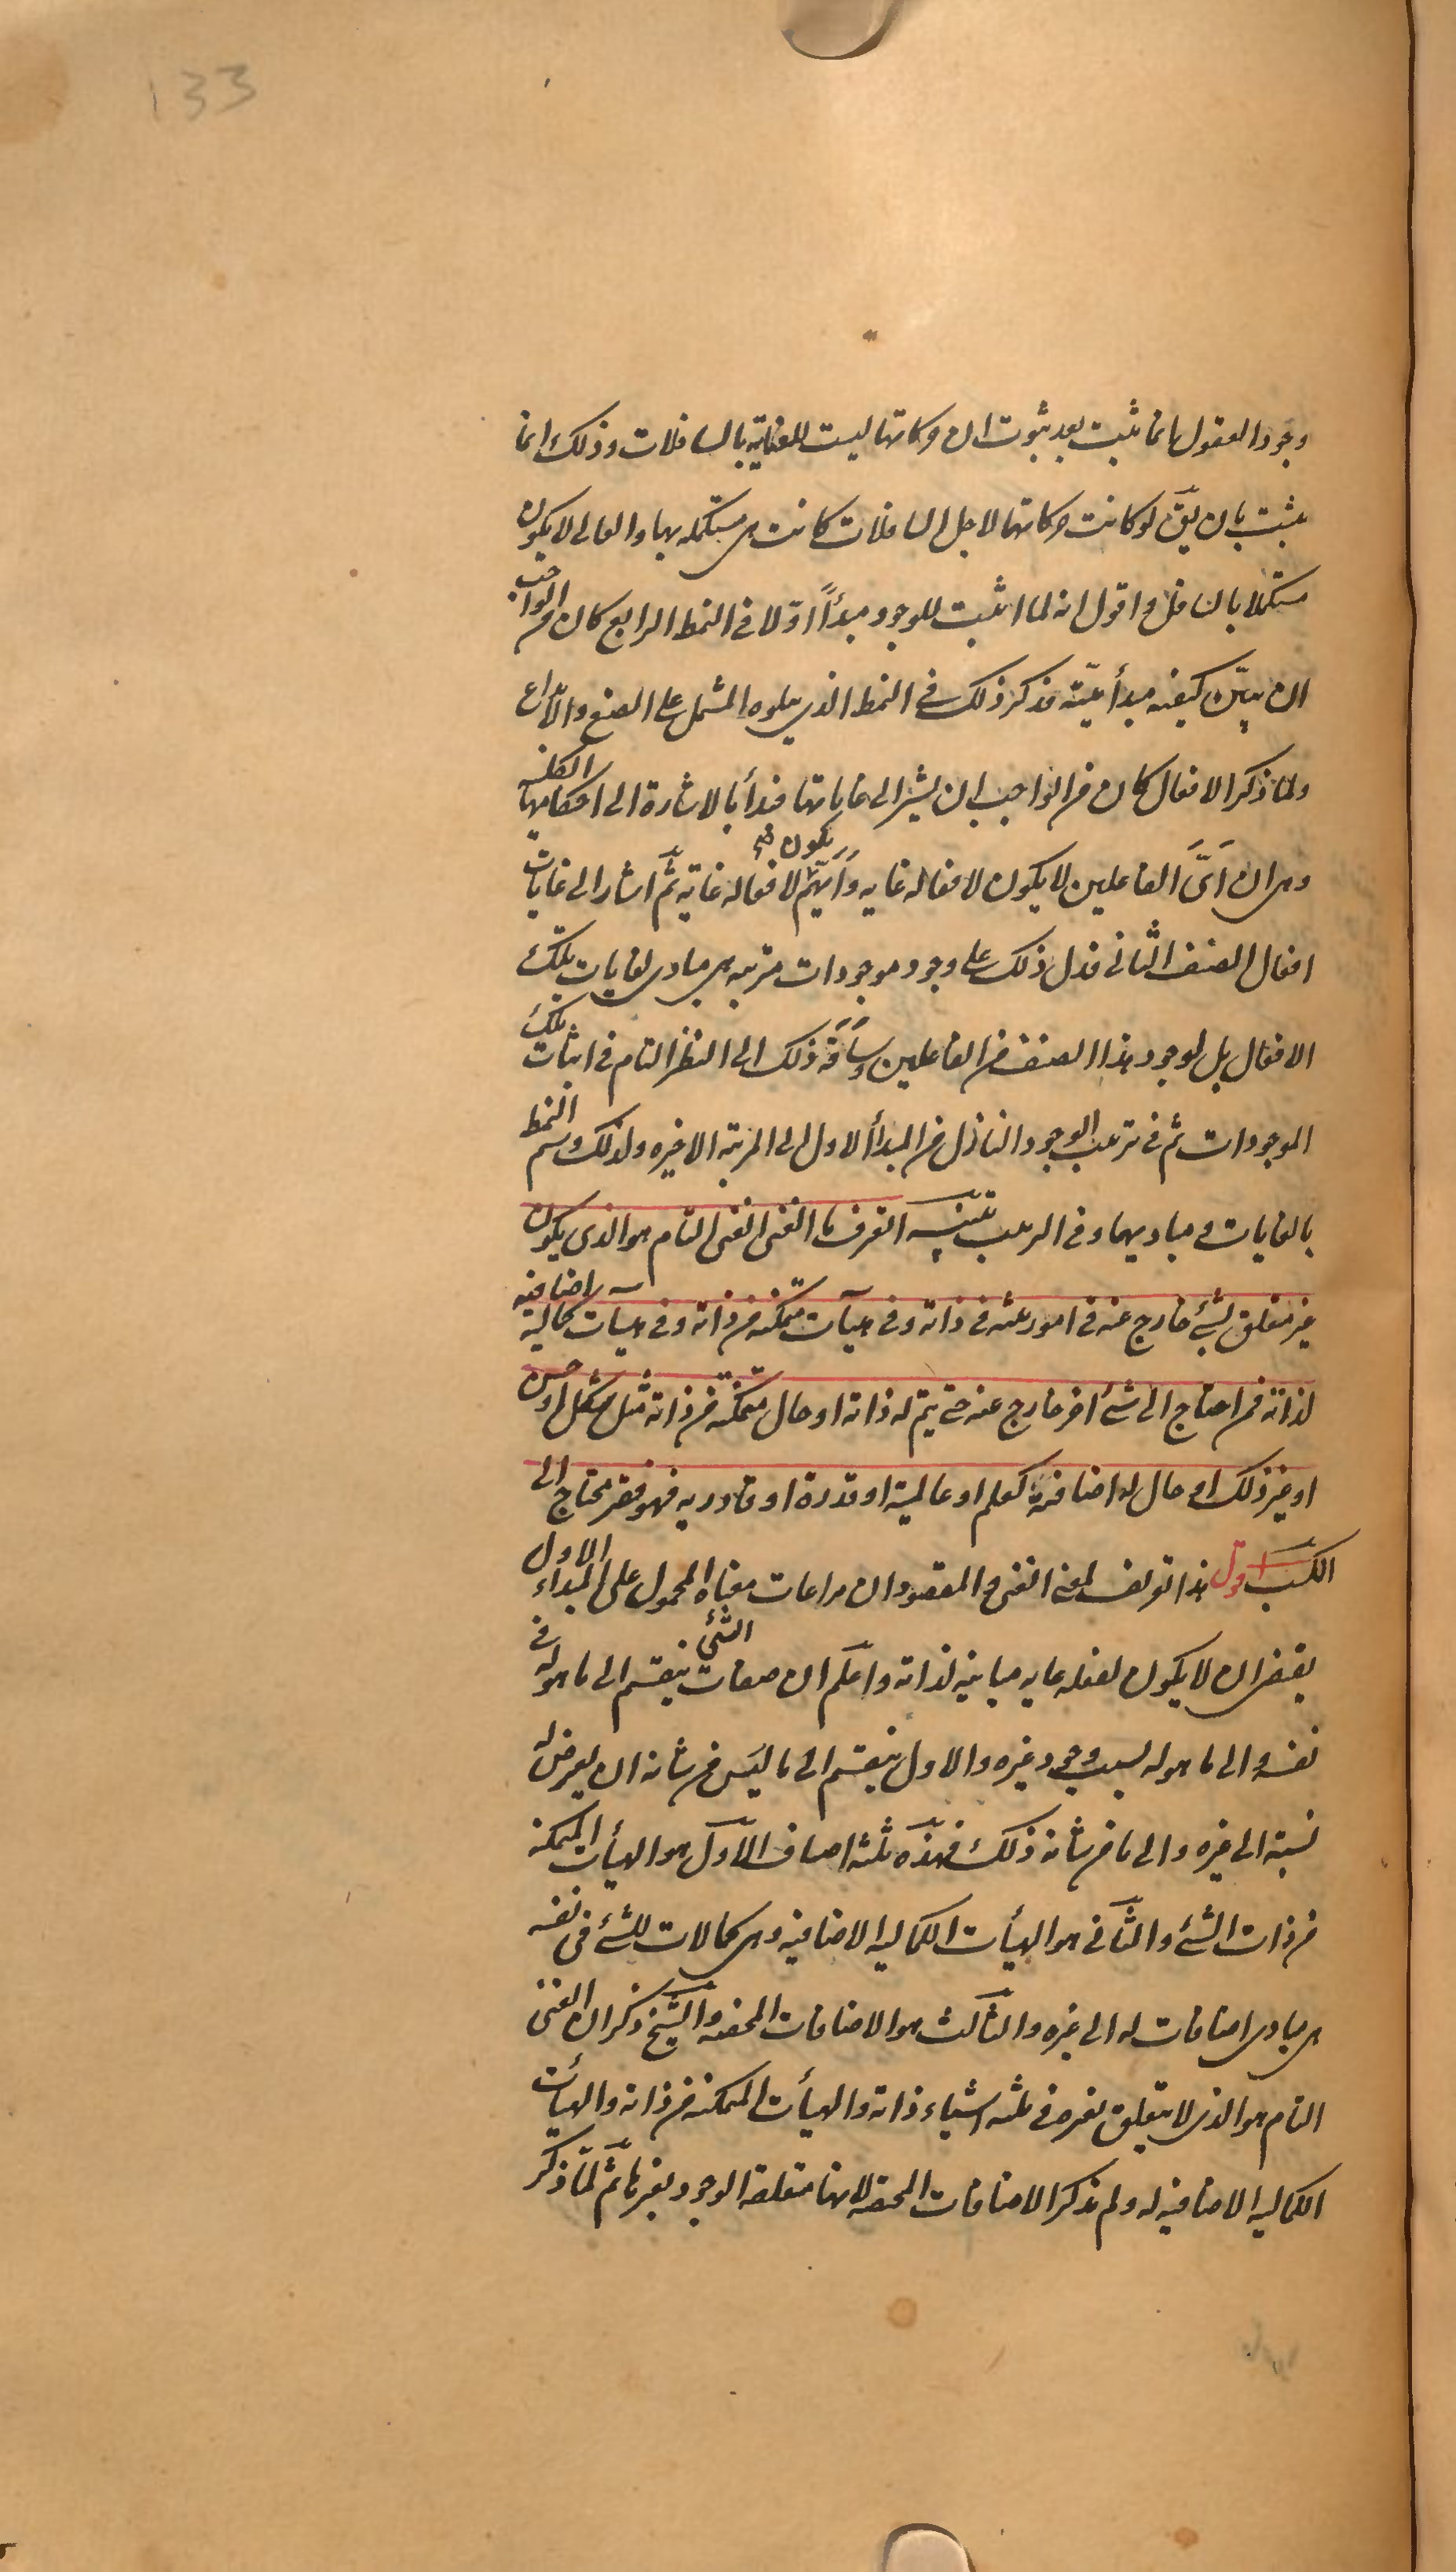 133
وجود العقول انما يثبت بعد ثبوت ان حركاتها ليست للعناية بالسافلات وذلك انما
يثبت بان يقّ لو كانت حركاتها لاجل السافلات كانت هى مستكمله بها والعالى لا يكون
مستكملا بالسافل واقول انه لما اثبت للوجود مبدأً اوّلا فى النمط الرابع كان من الواجب
ان يبيّن كيفيه مبدأيّته فذكر ذلك فى النمط الذى يتلوه المشتمل على الصنع والابداع
ولما ذكر الافعال كان من الواجب ان يشير الى غاياتها فبدأ بالاشارة الى احكامها الكليه
وهى ان اَىَّ الفاعلين لا يكون لافعاله غايه وَاَيّهم يكون لافعاله غاية ثُمّ اشار الى غايات
افعال الصنف الثانى فدل ذلك على وجود موجودات مترتبه هى مبادى لغايات تلك
الافعال بل لوجود هذا الصنف من الفاعلين وسَاقَهُ ذلك الى النظر التام فى اثبات تلك
الموجودات ثم فى ترتيب الوجود النازل من المبدأ الاول الى المرتبة الاخيره ولذلك وسم النمط
بالغايات و مباديها و فى الترتيب تنبيه اتعرف ما الغنى الغنى التام هو الذى يكون
غير متعلق بشئ خارج عنه فى امور ثلثه فى ذاته وفى هيآت متمكنه من ذاته وفى هيآت كماليه اضافيه
لذاته فمن احتاج الى شئ اخر خارج عنه حتى يتم له ذاته او حال متمكنه من ذاته مثل شكل او حسن
او غير ذلك او حال لها اضافة كعلم او عالمية او قدرة او قادريه فهو فقير محتاج الى
الكسب اقول هذا تعريف لمعنى الغنى و المقصود ان مراعات معناه المحمول على المبداء الاول
يقتضى ان لا يكون لفعله غايه مباينه لذاته واعلَم ان صفات الشئ ينقسم الى ما هو له فى
نفسه والى ما هو له بسبب وجود غيره والاول ينقسم الى ما ليس من شانه ان يعرض له
نسبة الى غيره والى ما من شانه ذلك فهذه ثلثه اصناف الاوّل هو الهيأت المتمكنه
من ذات الشئ والثّانى هو الهيأت الكماليه الاضافيه وهى كمالات للشئ فى نفسه
هى مبادى اضافات له الى غيره والثالث هو الاضافات المحضه والشّيخ ذكر ان الغنى
التام هو الذى لا يتعلق بغيره فى ثلثه اشياء ذاته والهيأت المتمكنه من ذاته والهيأت
الكماليه الاضافيه له ولم يذكر الاضافات المحضه لانها متعلقه الوجود بغيرها ثُمّ لمّا ذكر